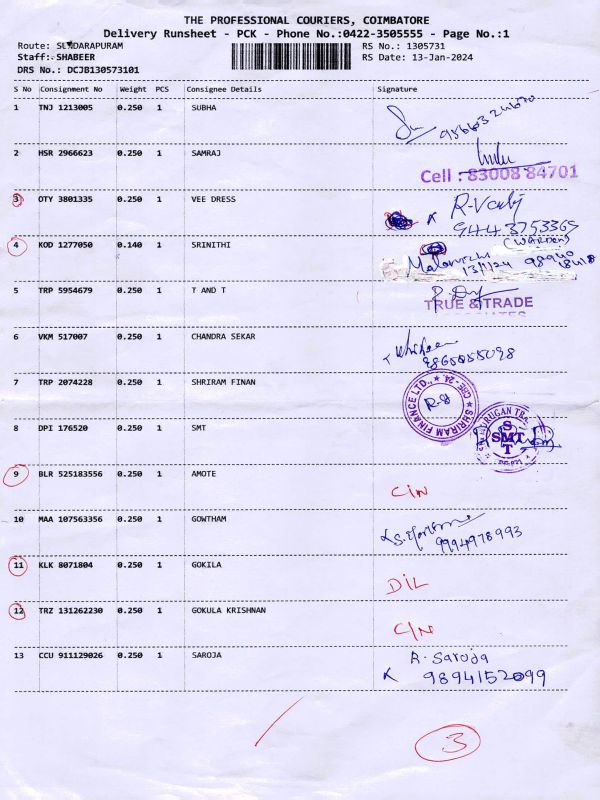 THE PROFESSIONAL COURIERS, COIMBATORE
Delivery Runsheet - PCK - Phone No.:0422-3505555 - Page No.:1
Route: SUNDARAPURAM
RS No.: 1305731
Staff: SHABEER
RS Date: 13-Jan-2024
DRS No.: DCJB130573101
S No Consignment No Weight PCS Consignee Details Signature
1 TNJ 1213005 0.250 1 SUBHA
2 HSR 2966623 0.250 1 SAMRAJ
Cell : 83008 84701
3 OTY 3801335 0.250 1 VEE DRESS
9443753369
4 KOD 1277050 0.140 1 SRINITHI
(WARDEN)
13/1/24 98940
18418
5 TRP 5954679 0.250 1 T AND T
TRUE & TRADE
6 VKM 517007 0.250 1 CHANDRA SEKAR
9865055098
7 TRP 2074228 0.250 1 SHRIRAM FINAN
SHRIRAM FINANCE LTD., ★ CBE - 24. ★
R-8
8 DPI 176520 0.250 1 SMT
SMT
9 BLR 525183556 0.250 1 AMOTE
C/N
10 MAA 107563356 0.250 1 GOWTHAM
9994978993
11 KLK 8071804 0.250 1 GOKILA
D/L
12 TRZ 131262230 0.250 1 GOKULA KRISHNAN
C/N
13 CCU 911129026 0.250 1 SAROJA
R. Saroja
9894152099
3